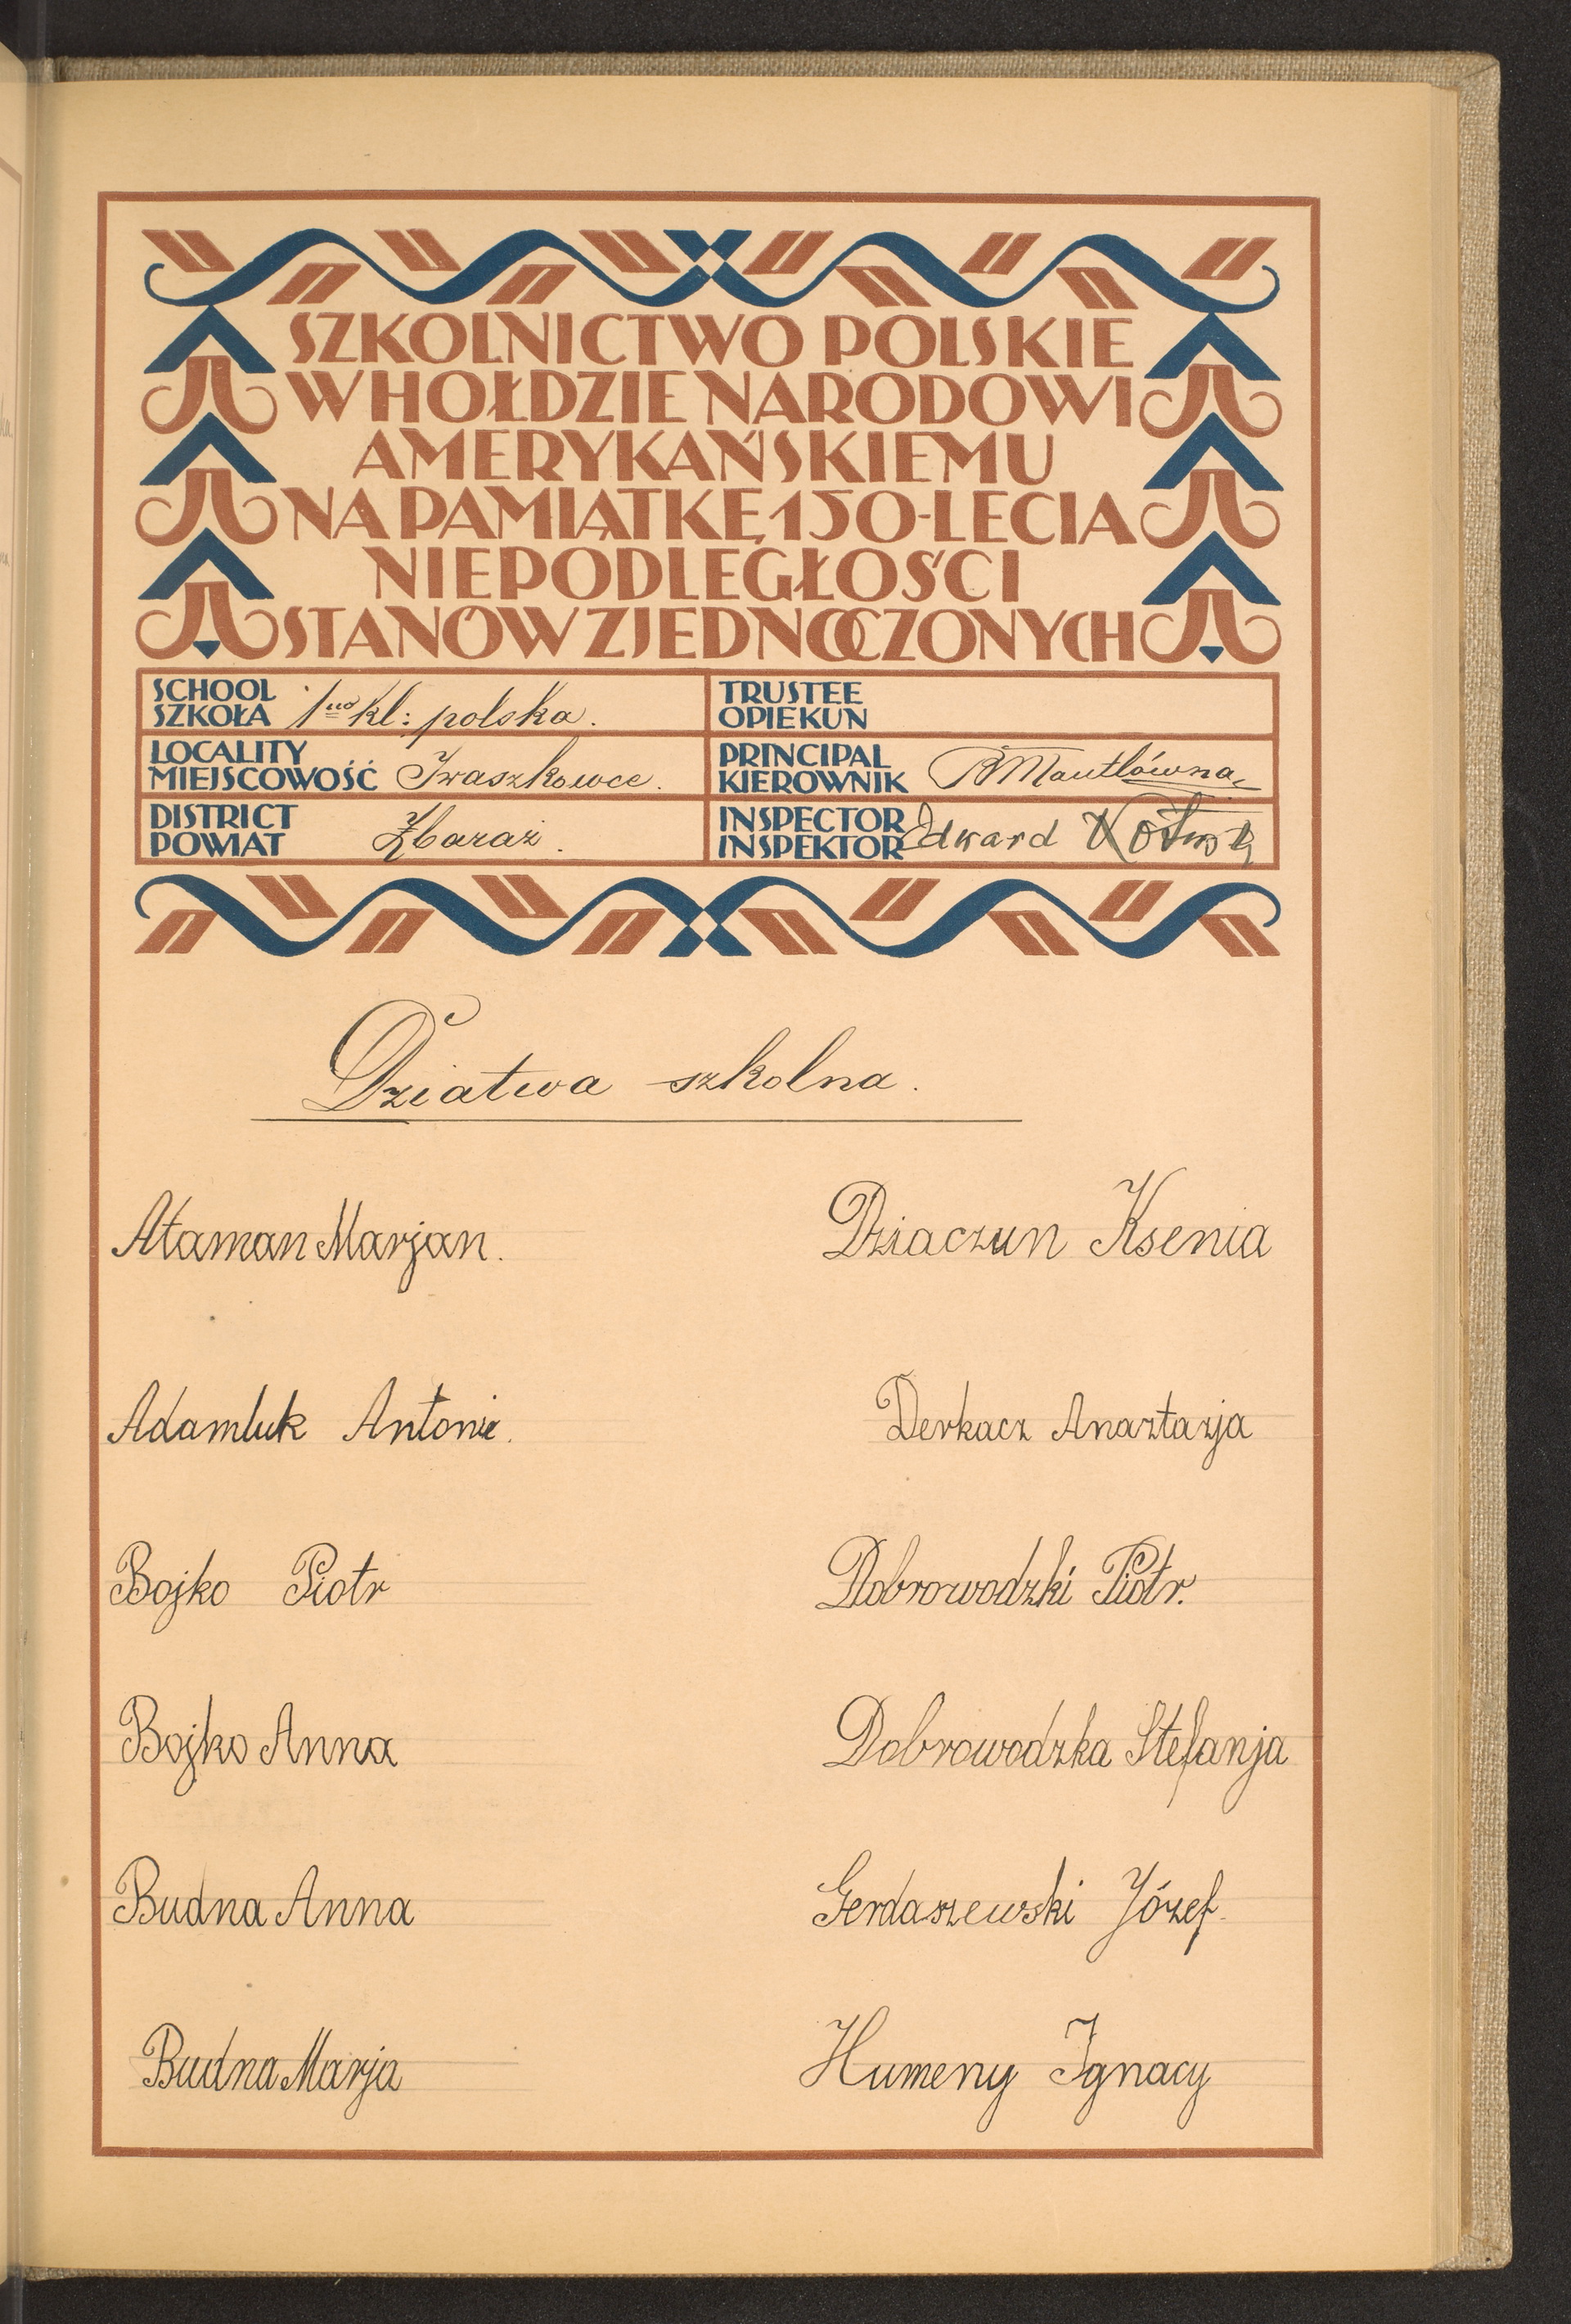 SZKOLNICTWO POLSKIE
W HOŁDZIE NARODOWI
AMERYKAŃSKIEMU
NA PAMIĄTKĘ 150-LECIA
NIEPODLEGŁOŚCI
STANÓW ZJEDNOCZONYCH
SCHOOL
SZKOŁA 1no kl: polska.
TRUSTEE
OPIEKUN
LOCALITY
MIEJSCOWOŚĆ Iwaszkowce.
PRINCIPAL
KIEROWNIK RMantlówna
DISTRICT
POWIAT Zbaraż.
INSPECTOR
INSPEKTOR Edward
Dziatwa szkolna.
Ataman Marjan.
Dziaczun Ksenia
Adamluk Antonie.
Derkacz Anaztazja
Bojko Piotr
Dobrowodzki Piotr.
Bojko Anna
Dobrowodzka Stefanja
Budna Anna
Gerdaszewski Józef.
Budna Marja
Humeny Ignacy